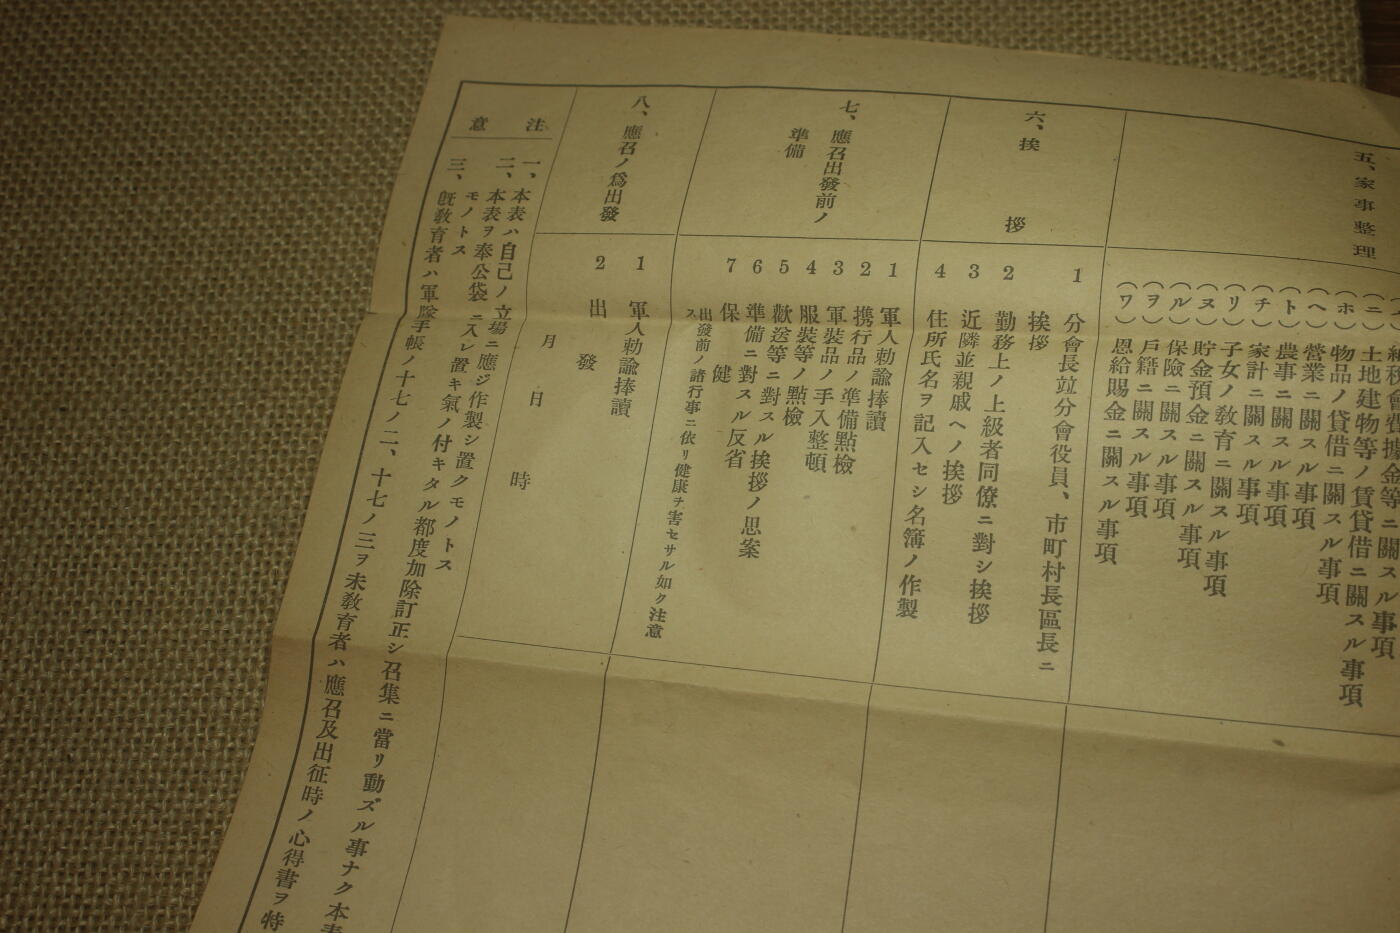 五、家事整理
納稅會費據金等ニ關スル事項
(ニ)土地建物等ノ賃貸借ニ關スル事項
(ホ)物品ノ貸借ニ關スル事項
(ヘ)營業ニ關スル事項
(ト)農事ニ關スル事項
(チ)家計ニ關スル事項
(リ)子女ノ敎育ニ關スル事項
(ヌ)貯金預金ニ關スル事項
(ル)保險ニ關スル事項
(ヲ)戶籍ニ關スル事項
(ワ)恩給賜金ニ關スル事項
六、挨拶
1 分會長竝分會役員、市町村長區長ニ
挨拶
2 勤務上ノ上級者同僚ニ對シ挨拶
3 近隣並親戚ヘノ挨拶
4 住所氏名ヲ記入セシ名簿ノ作製
七、應召出發前ノ
準備
1 軍人勅諭捧讀
2 携行品ノ準備點檢
3 軍裝品ノ手入整頓
4 服裝等ノ點檢
5 歡送等ニ對スル挨拶ノ思案
6 準備ニ對スル反省
7 保健
出發前ノ諸行事ニ依リ健康チ害セサル如ク注意
ス
八、應召ノ爲出發
1 軍人勅諭捧讀
2 出發
月日時
注意
一、本表ハ自己ノ立場ニ應ジ作製シ置クモノトス
二、本表ヲ奉公袋ニ入レ置キ氣ノ付キタル都度加除訂正シ召集ニ當リ動ズル事ナク本表
モノトス
三、旣敎育者ハ軍隊手帳ノ十七ノ二、十七ノ三ヲ未敎育者ハ應召及出征時ノ心得書ヲ特